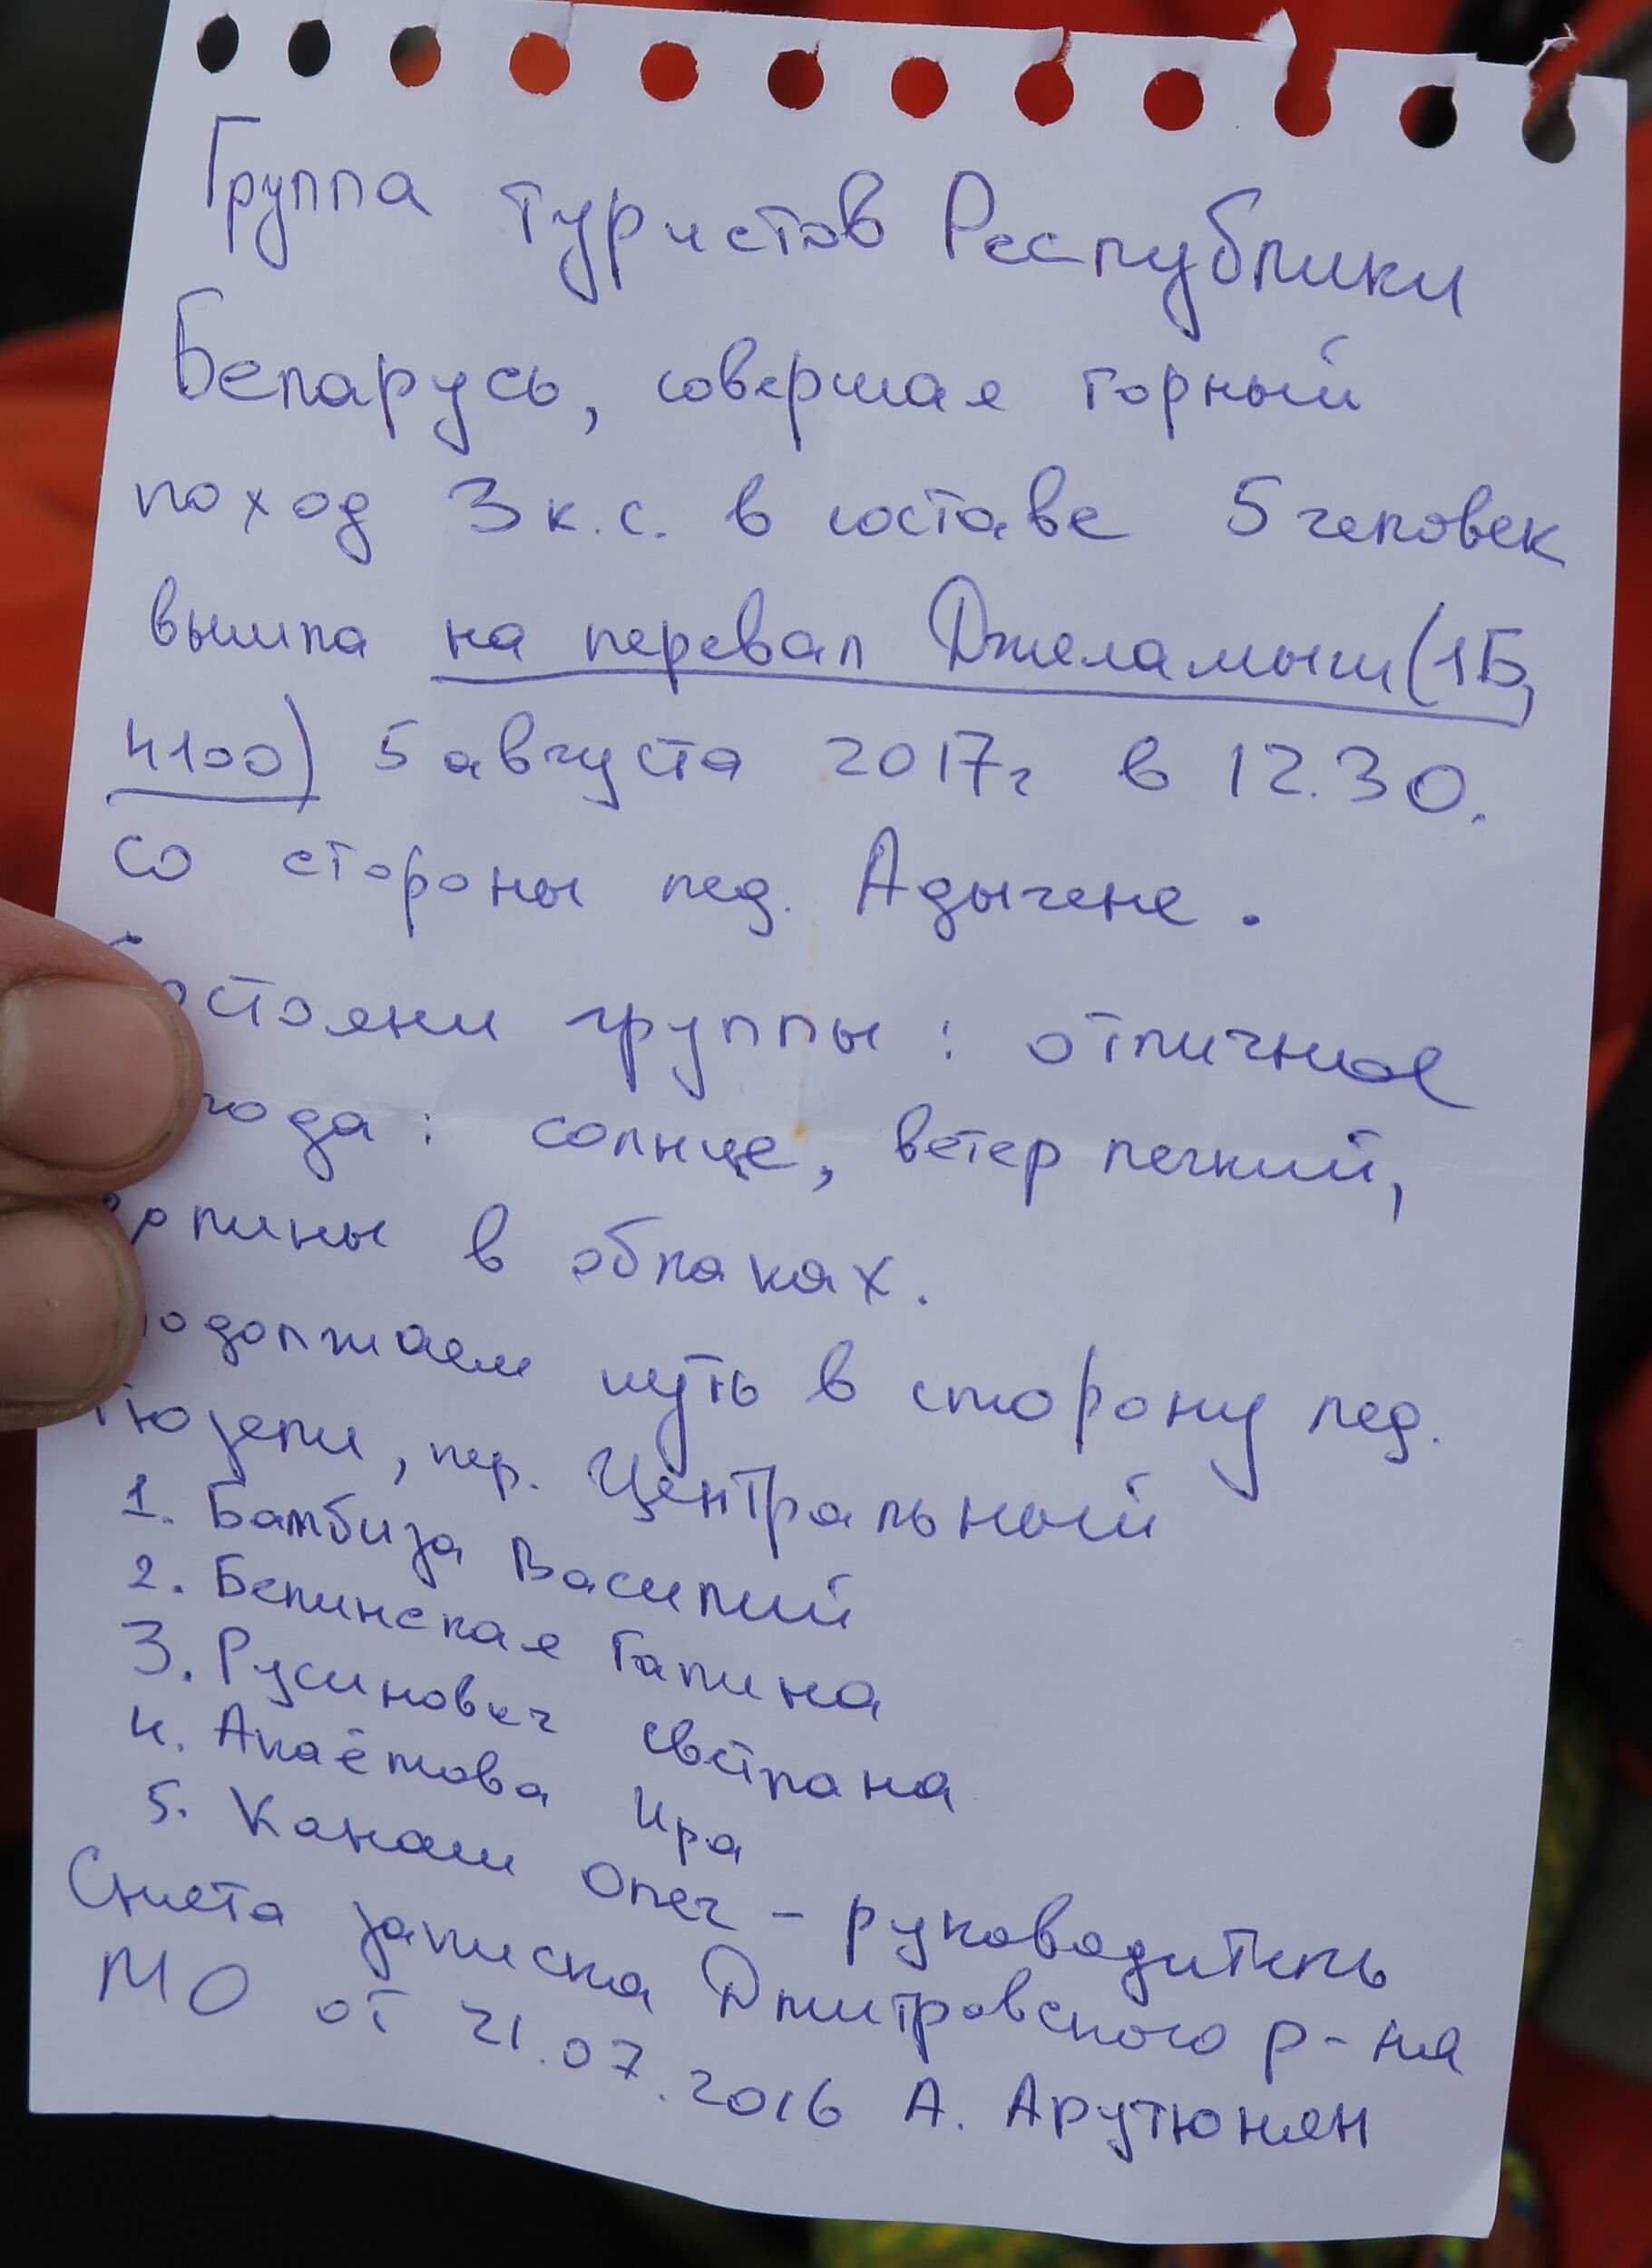 Группа туристов Республики
Беларусь, совершая горный
поход 3 к.с. в составе 5 человек
вышла на перевал Джеламыш (1Б,
4100) 5 августа 2017г в 12.30.
со стороны лед. Адыгене.
Состояни группы: отличное
года: солнце, ветер легкий,
в облаках.
должаем путь в сторону лед.
Тюзели, пер. Центральный
1. Бамбиза Василий
2. Белинская Галина
3. Русинович Светлана
4. Ира
5. Канаш Олег - руководитель
Снята записка Дмитровского р-на
МО от 21.07.2016 А. Арутюнян